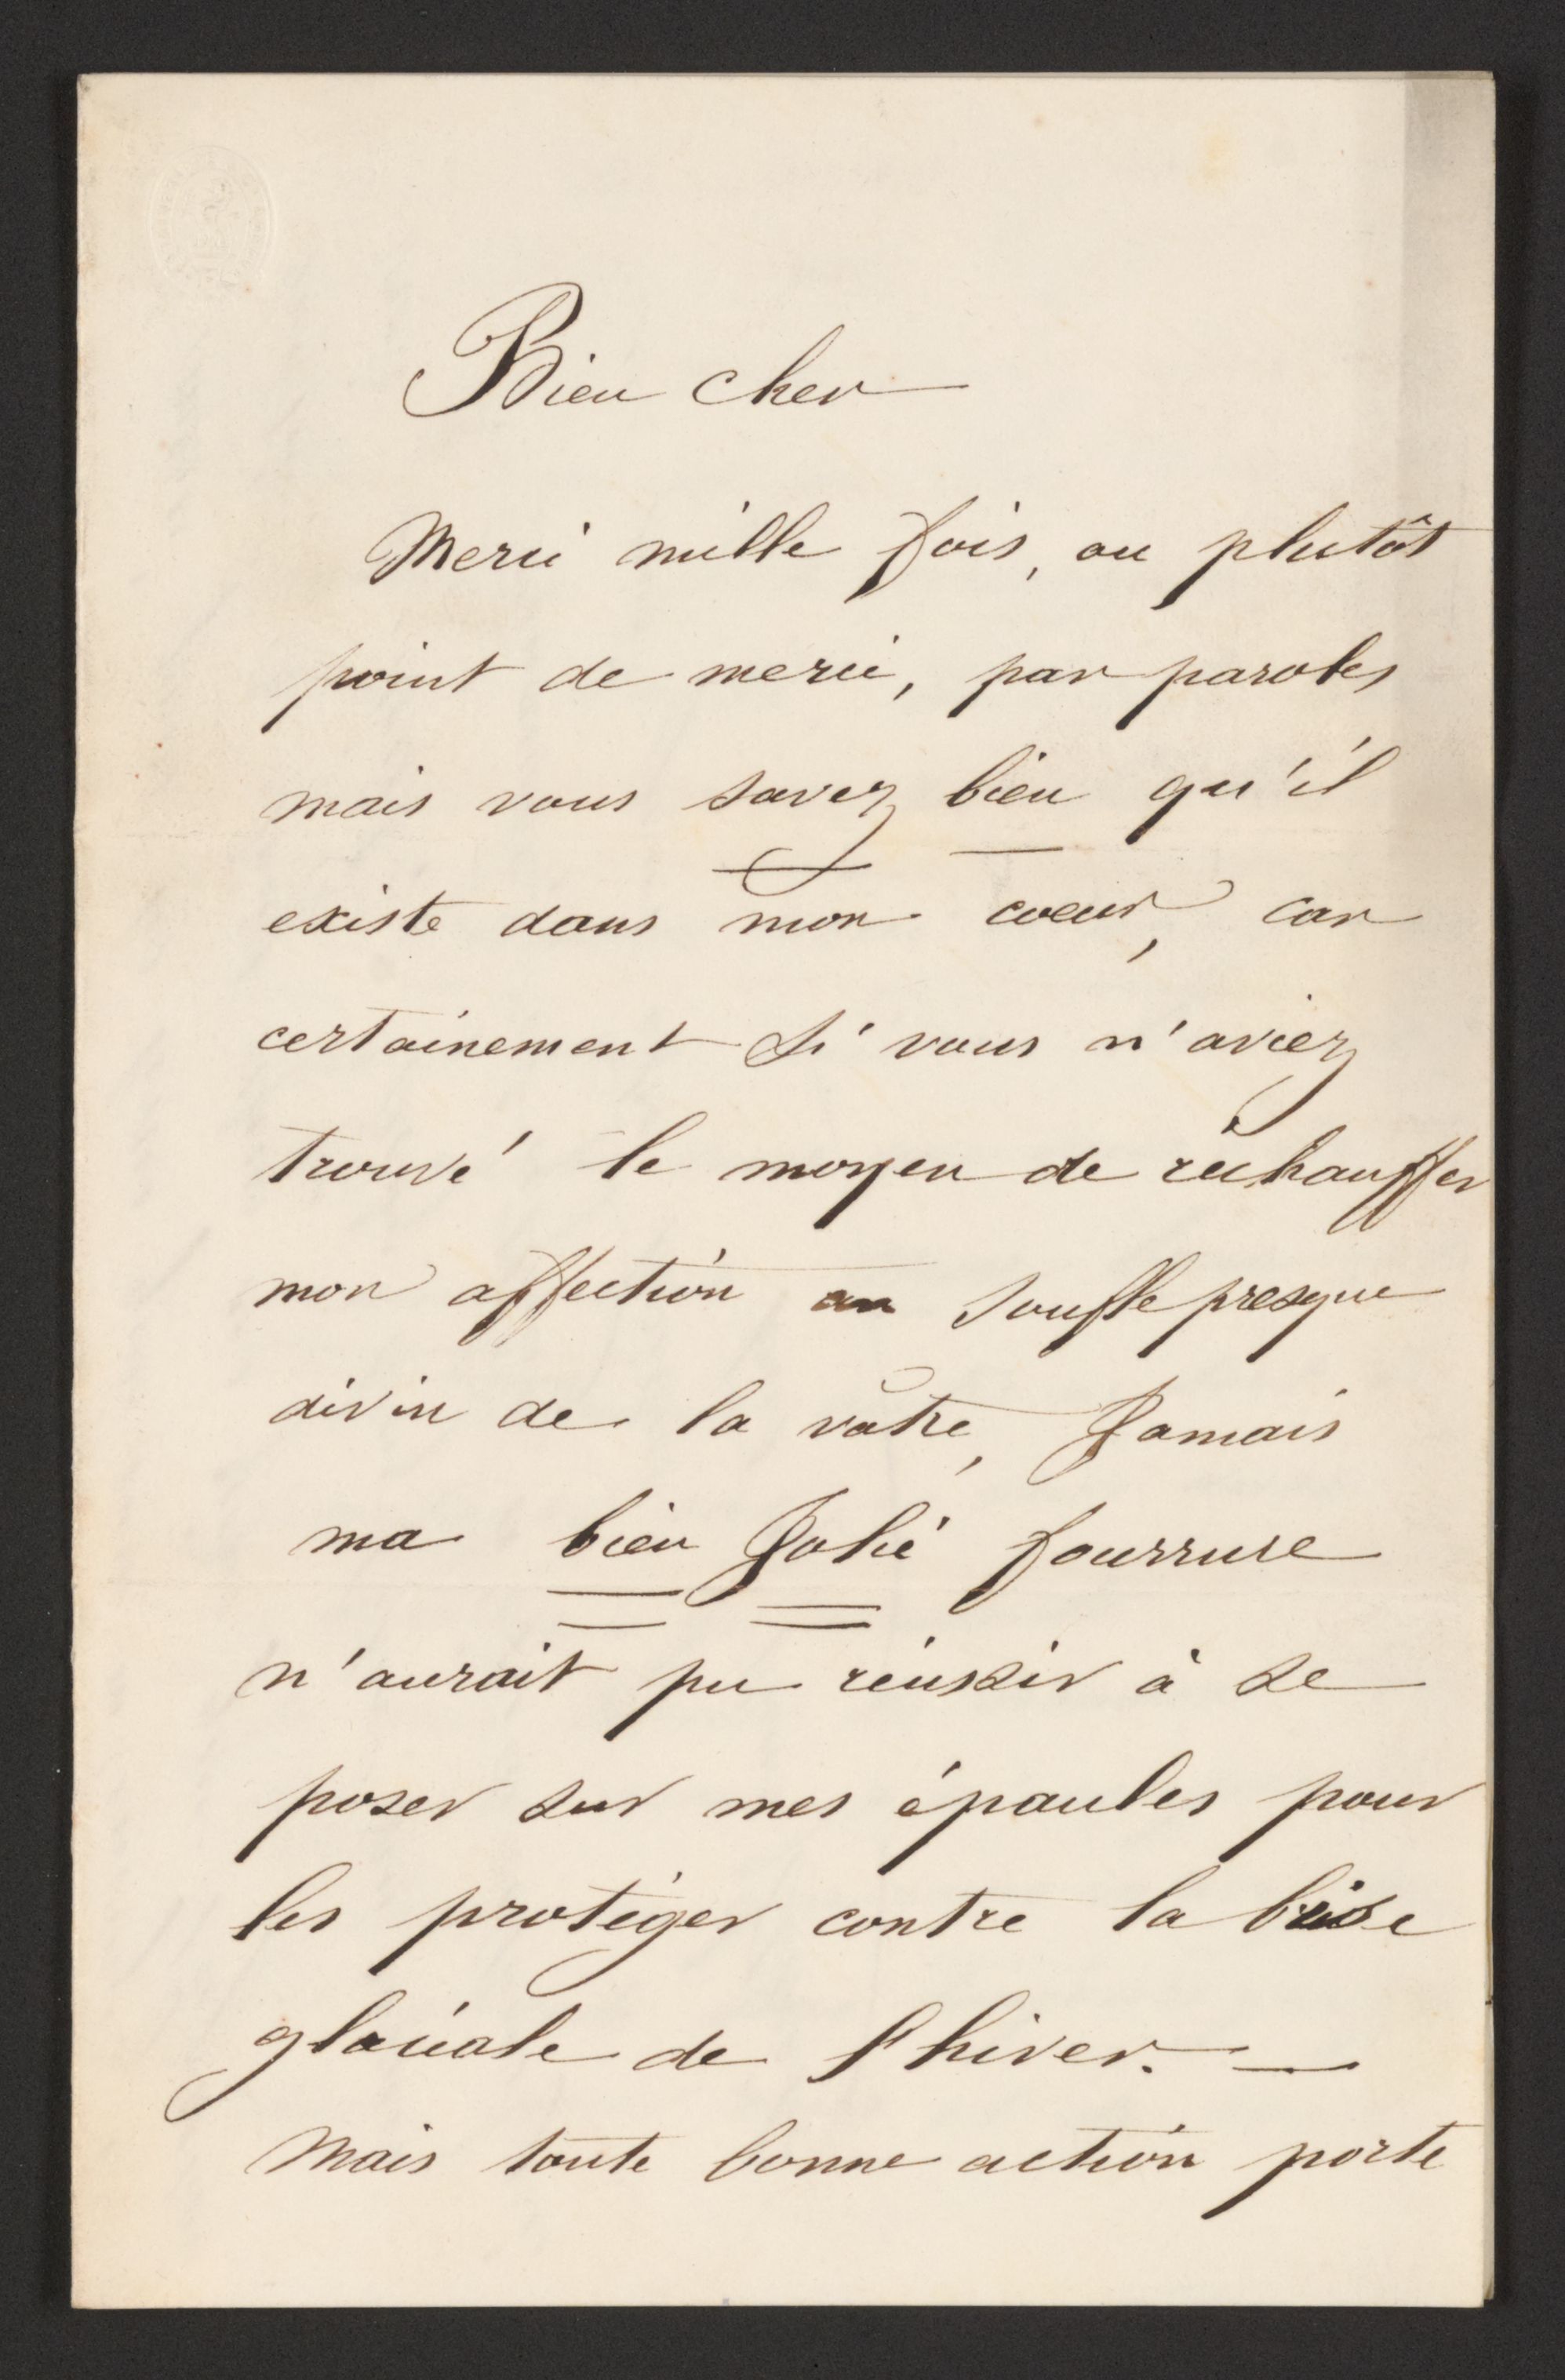 Bien cher
Merci mille fois, ou plutôt
point de merci, par paroles
mais vous savez bien qu'il
existe dans mon coeur, car
certainement si vous n'aviez
trouvé le moyen de réchauffer
mon affection au souffle presque
divin de la vôtre, Jamais
ma bien Jolie fourrure
n'aurait pu réussir à se
poser sur mes épaules pour
les protéger contre la bise
glaciale de l'hiver. —
Mais toute bonne action porte